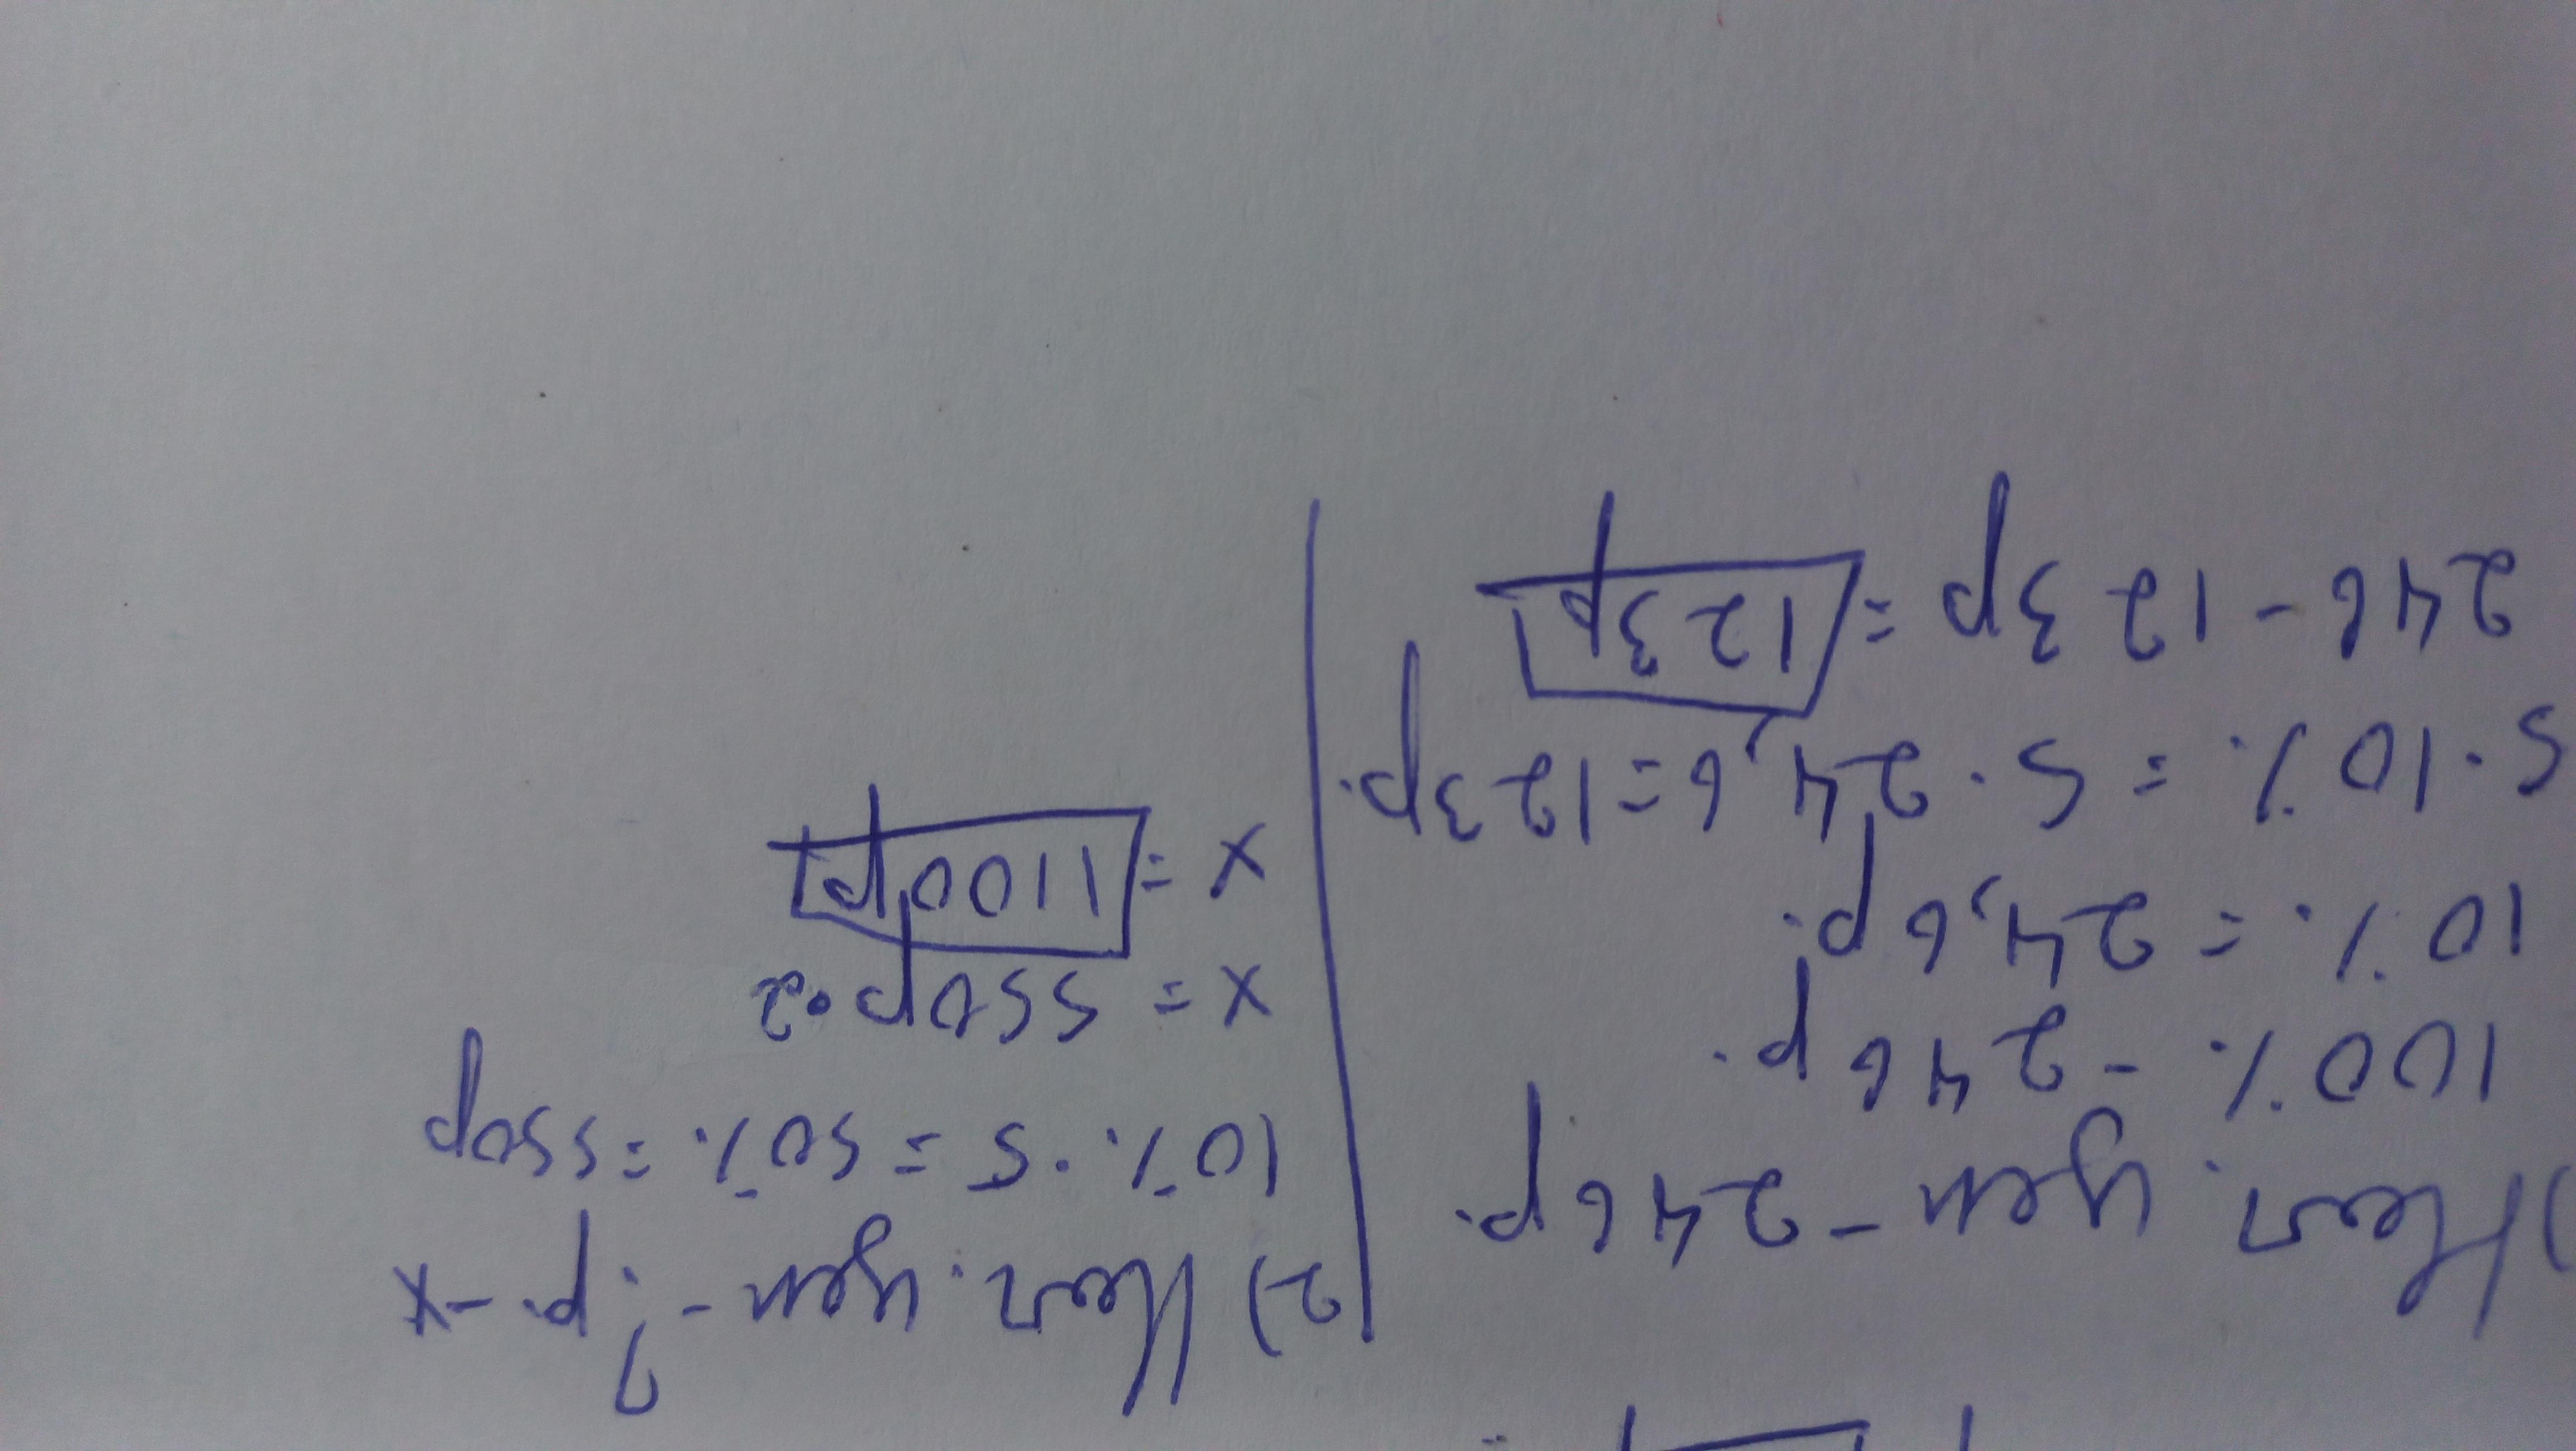 ) Нач. цен - 246 р.
100% - 246 р.
10% = 24,6 р.
5·10% = 5·24,6 = 123р.
246 - 123р = 123р
2) Нач. цен - ? р. - x
10%·5 = 50% = 550р
x = 550р·2
x = 1100р